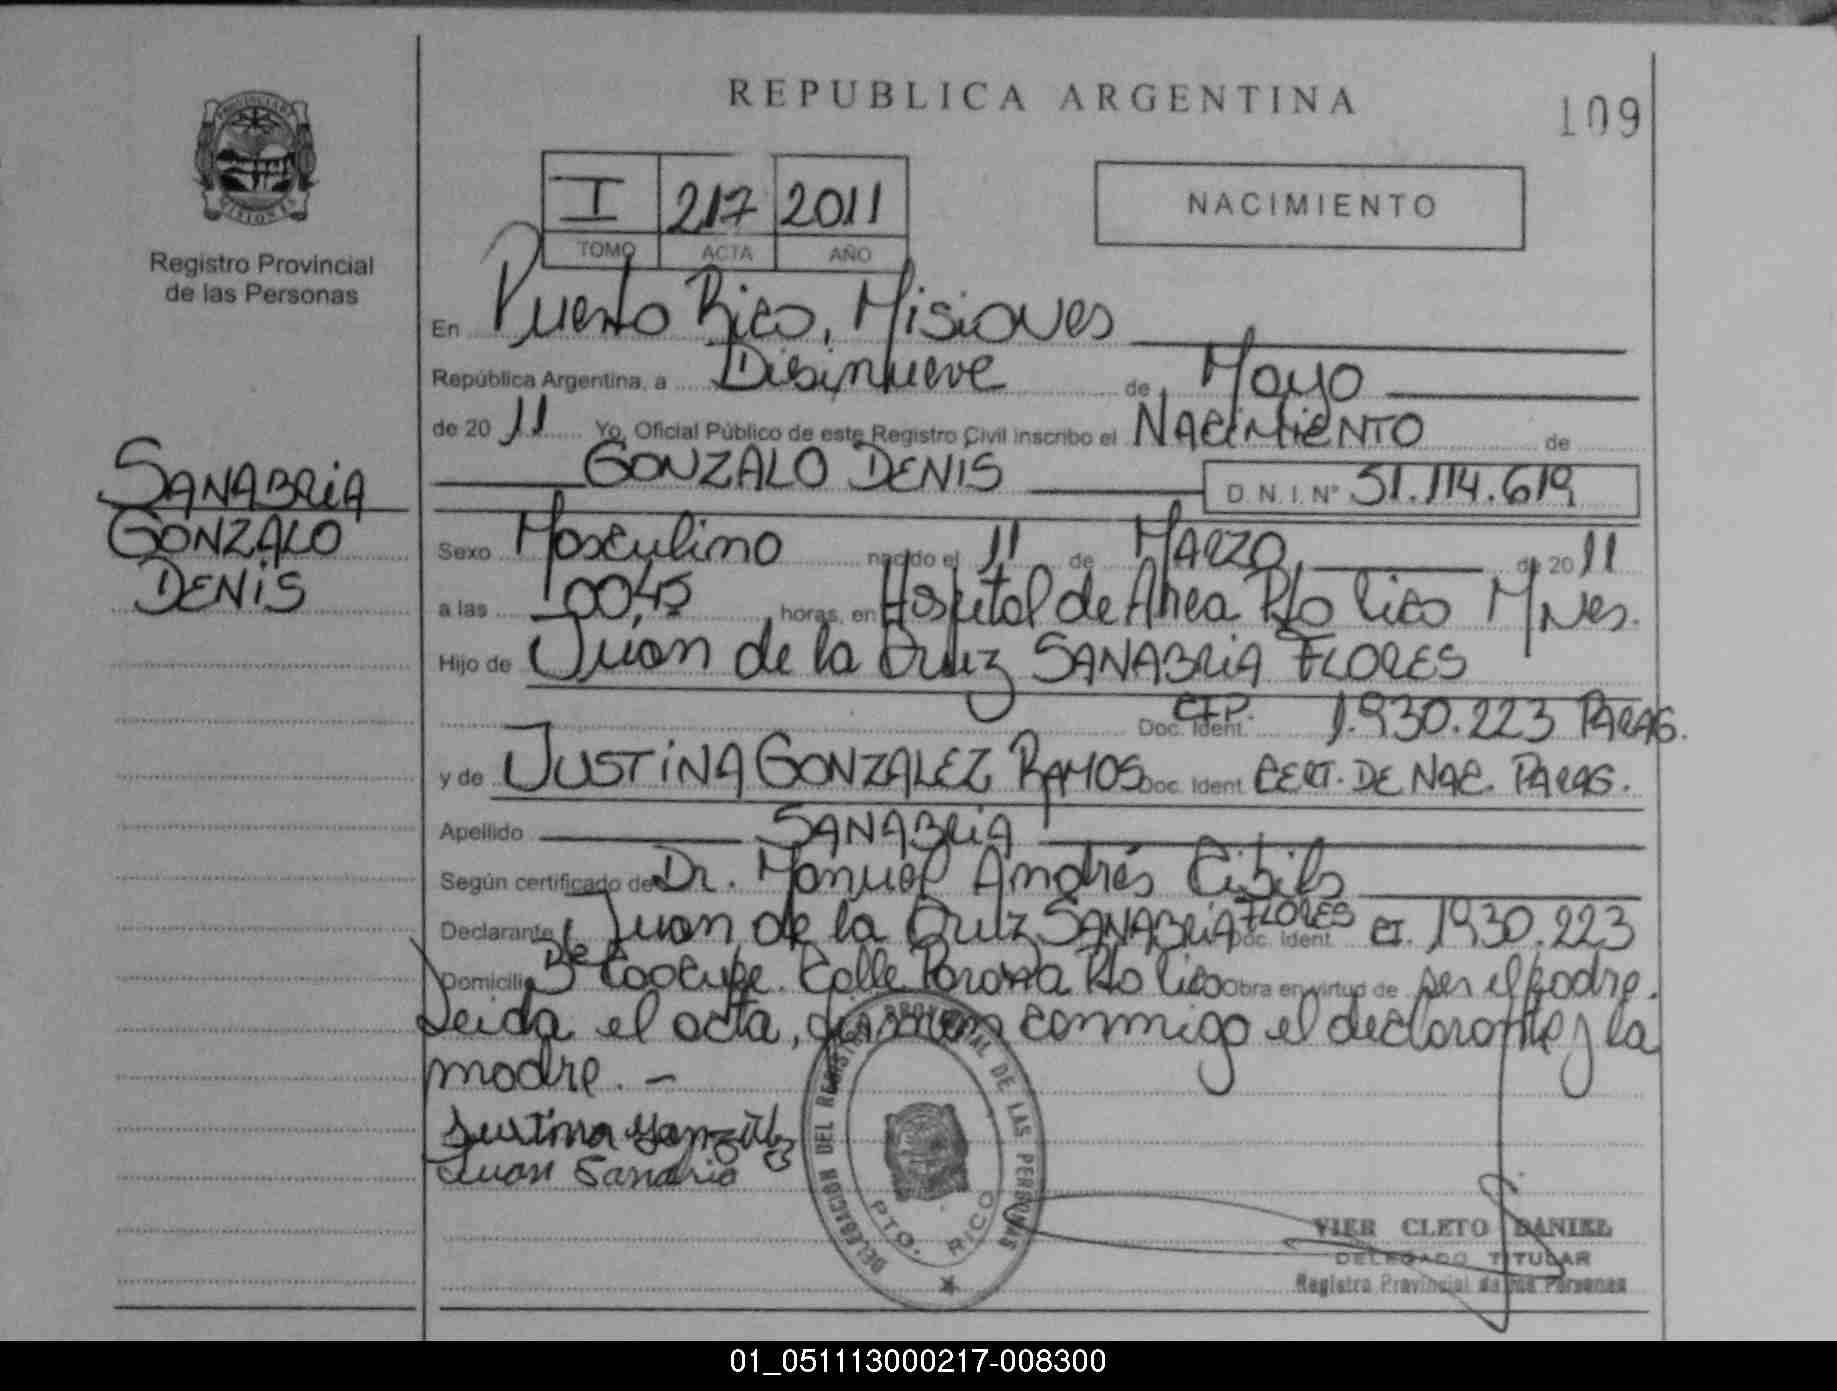 REPUBLICA ARGENTINA
109
PROVINCIA DE MISIONES
Registro Provincial
de las Personas
I 217 2011
TOMO ACTA AÑO
NACIMIENTO
En Puerto Rico, Misiones
República Argentina, a Diesinueve de Mayo
de 2011 Yo, Oficial Público de este Registro Civil inscribo el NACIMIENTO de
GONZALO DENIS D.N.I. Nº 51.114.619
SANABRIA
GONZALO
DENIS
Sexo Masculino nacido el 11 de MARZO de 2011
a las 00,45 horas, en Hospital de Area Pto Rico Mnes.
Hijo de Juan de la Cruz SANABRIA FLORES
Doc. Ident. CIP. 1.930.223 PARAG.
y de JUSTINA GONZALEZ RAMOS Doc. Ident CERT. DE NAC. PARAG.
Apellido SANABRIA
Según certificado de Dr. Manuel Andrés Cibils
Declarante Juan de la Cruz SANABRIA FLORES Doc. Ident CI. 1930.223
Domicilio Calle Parana Pto Rico Obra en virtud de ser el padre.
Leida el acta, conmigo el declarante y la
madre. -
Justina Gonzalez
Juan Sanabria
DELEGACION DEL REGISTRO PROVINCIAL DE LAS PERSONAS
PTO. RICO
VIER CLETO DANIEL
DELEGADO TITULAR
Registro Provincial de las Personas
01_051113000217-008300